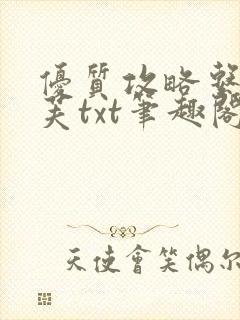 優質攻略
笑txt筆趣閣
天使會笑偶尔